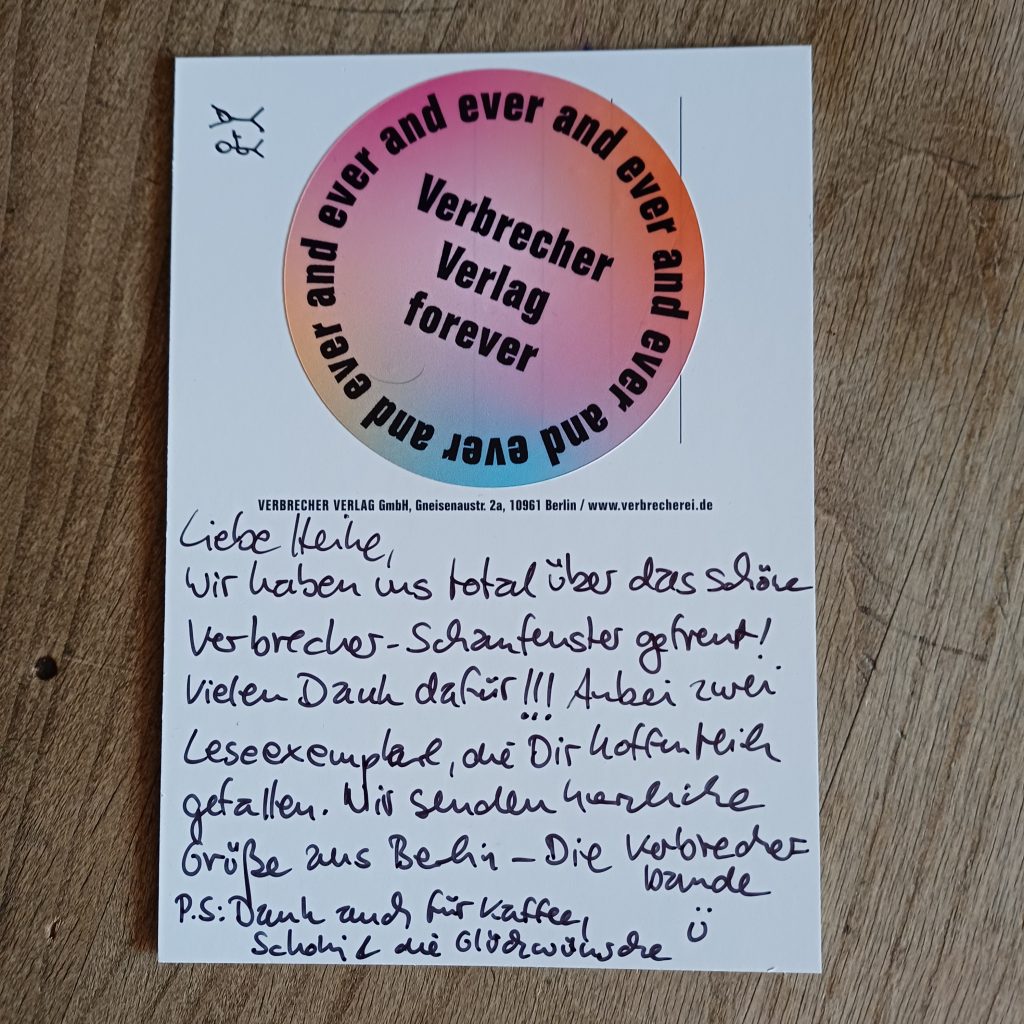 and ever and ever and ever and ever and ever and ever
Verbrecher
Verlag
forever
VERBRECHER VERLAG GmbH, Gneisenaustr. 2a, 10961 Berlin / www.verbrecherei.de
Liebe Heike,
wir haben uns total über das schöne
Verbrecher-Schaufenster gefreut!
Vielen Dank dafür!!! Anbei zwei
Leseexemplare, die Dir hoffentlich
gefallen. Wir senden herzliche
Grüße aus Berlin – Die Verbrecher=
bande
P.S: Dank auch für Kaffee,
Schoki & die Glückwünsche